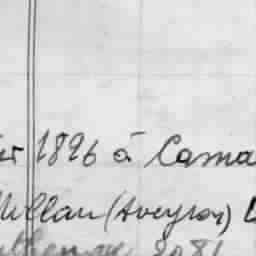 1896 à Cama
Millau (Aveyron)
2081